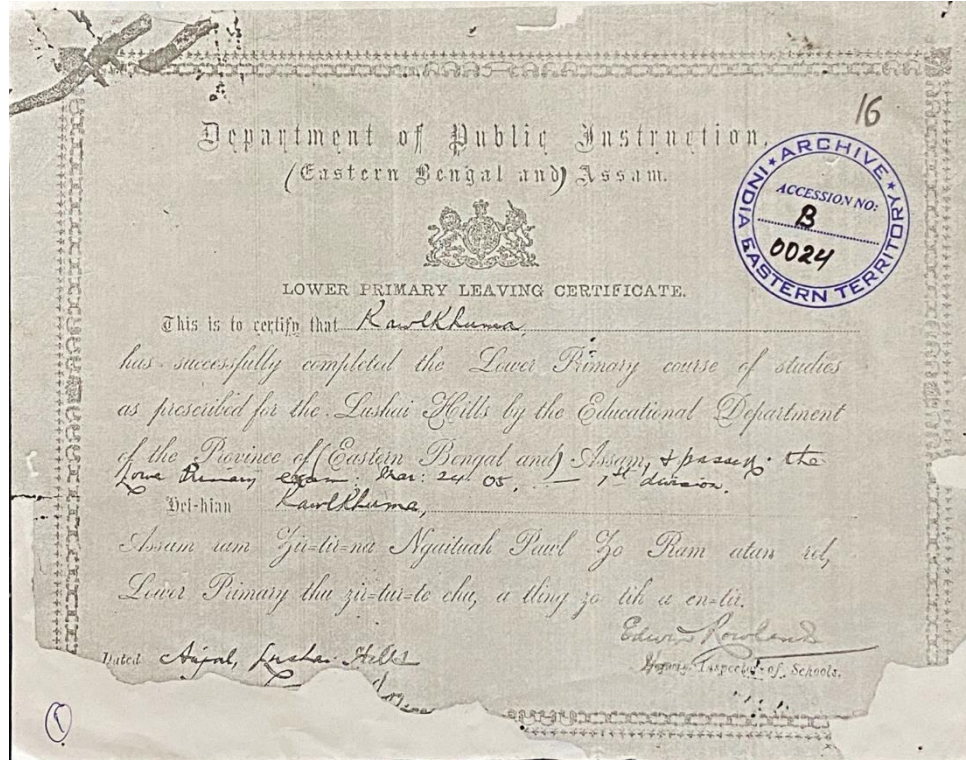 16
Department of Public Instruction,
(Eastern Bengal and) Assam.
ARCHIVE
INDIA EASTERN TERRITORY
ACCESSION NO:
B
0024
LOWER PRIMARY LEAVING CERTIFICATE.
This is to certify that Kawlkhuma,
has successfully completed the Lower Primary course of studies
as prescribed for the Lushai Hills by the Educational Department
of the Province of (Eastern Bengal and) Assam, & passed the
Lower Primary exam: Mar: 24 05, — 1st division.
Hei-hian Kawlkhuma,
Assam ram Zir-tir-na Ngaituah Pawl Zo Ram atan rel,
Lower Primary thu zir-tur-te chu, a tling zo tih a en-tir.
Edwin Rowlands
Dated Aijal, Lushai Hills
Honary. Inspector of Schools.
1